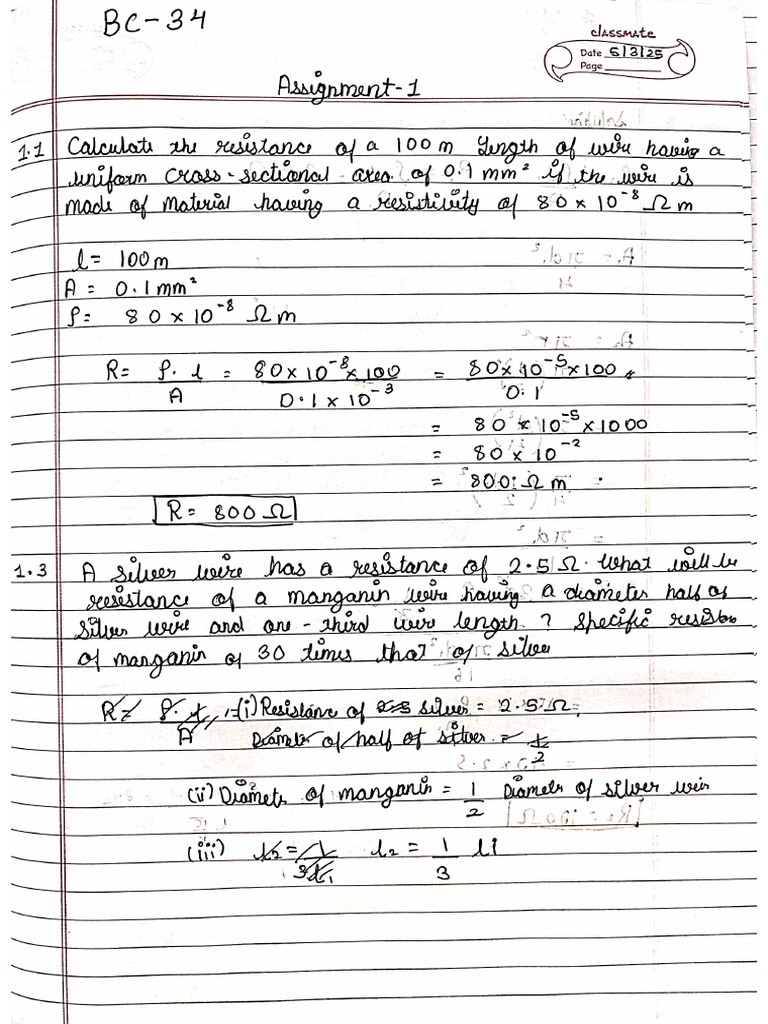 BC-34
classmate
Date 5/3/25
Page
Assignment-1
1.1 Calculate the resistance of a 100 m length of wire having a
uniform cross-sectional area of 0.1 mm² if the wire is
made of material having a resistivity of 80 x 10⁻⁸ Ωm
l = 100m
A = 0.1 mm²
ρ = 80 x 10⁻⁸ Ωm
R = ρ. l / A = 80 x 10⁻⁸ x 100 / 0.1 x 10⁻³ = 80 x 10⁻⁵ x 100 / 0.1
= 80 x 10⁻⁵ x 1000
= 80 x 10⁻²
= 800 Ω m
R = 800 Ω
1.3 A silver wire has a resistance of 2.5 Ω. What will be
resistance of a manganin wire having a diameter half of
silver wire and one-third wire length? Specific
of manganin of 30 times that of silver
(i) Resistance of silver = 2.5 Ω
Diameter of half of silver = 1/2
(ii) Diameter of manganin = 1/2 Diameter of silver
(iii) l₂ = 1/3 l1